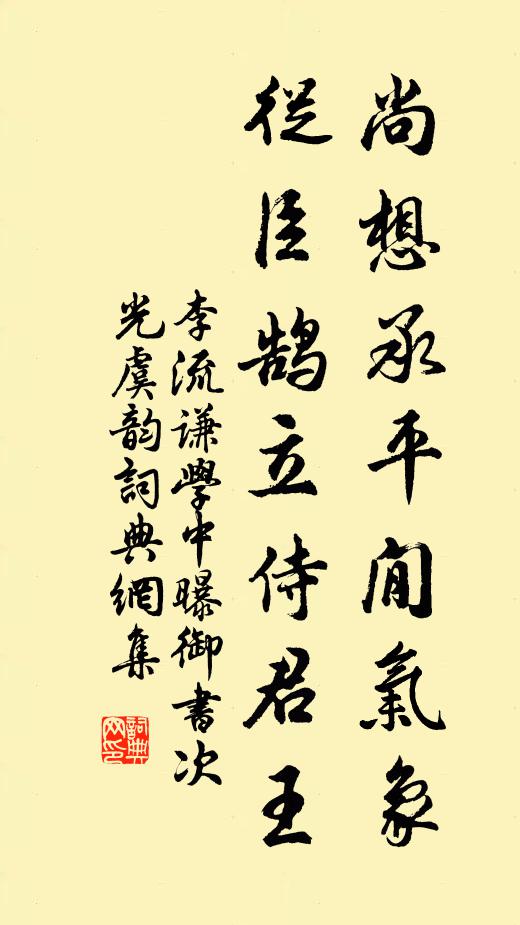 尚想承平閒氣象
從臣鹄立侍君王
李流谦學中曝御書次
光虞韵詞典網集
詞典
网印